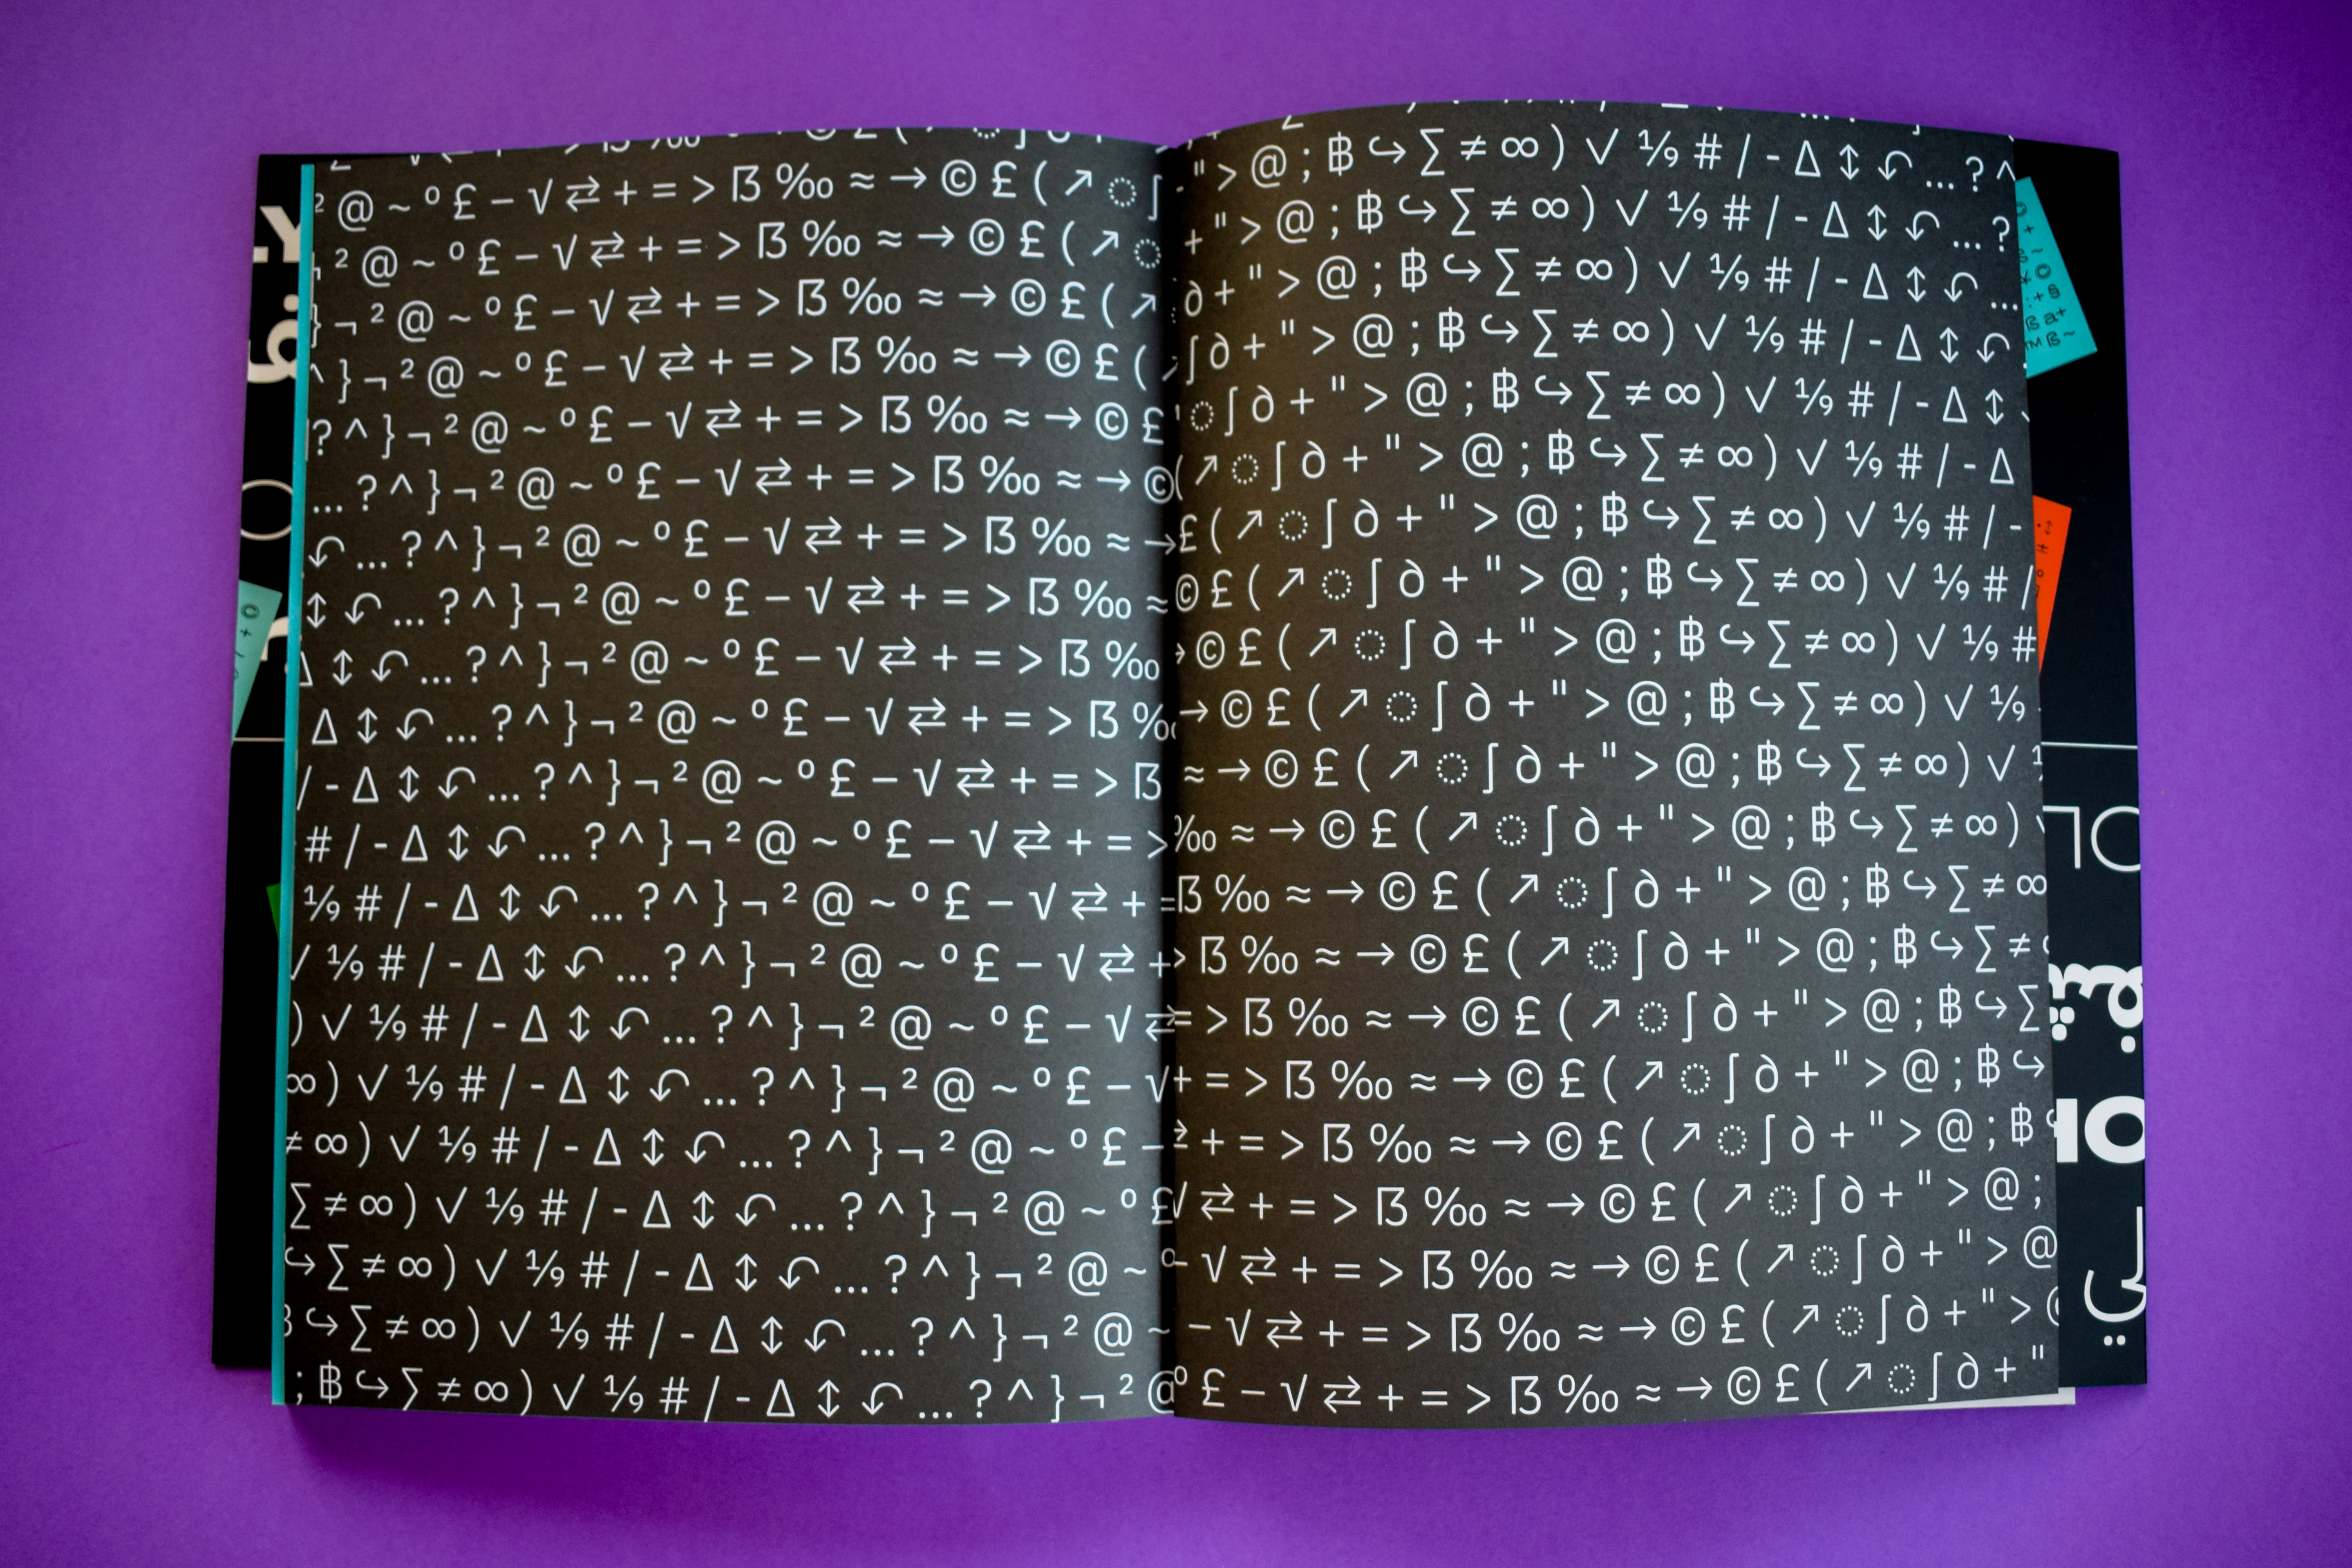 ² @ ~ º £ − √ ⇄ + = > ẞ ‰ ≈ → © £ ( ↗ ◌ ∫
¬ ² @ ~ º £ − √ ⇄ + = > ẞ ‰ ≈ → © £ ( ↗ ◌
} ¬ ² @ ~ º £ − √ ⇄ + = > ẞ ‰ ≈ → © £ ( ↗
^ } ¬ ² @ ~ º £ − √ ⇄ + = > ẞ ‰ ≈ → © £ (
? ^ } ¬ ² @ ~ º £ − √ ⇄ + = > ẞ ‰ ≈ → © £
… ? ^ } ¬ ² @ ~ º £ − √ ⇄ + = > ẞ ‰ ≈ → ©
↶ … ? ^ } ¬ ² @ ~ º £ − √ ⇄ + = > ẞ ‰ ≈ →
↕ ↶ … ? ^ } ¬ ² @ ~ º £ − √ ⇄ + = > ẞ ‰ ≈
∆ ↕ ↶ … ? ^ } ¬ ² @ ~ º £ − √ ⇄ + = > ẞ ‰
∆ ↕ ↶ … ? ^ } ¬ ² @ ~ º £ − √ ⇄ + = > ẞ ‰
/ - ∆ ↕ ↶ … ? ^ } ¬ ² @ ~ º £ − √ ⇄ + = > ẞ
# / - ∆ ↕ ↶ … ? ^ } ¬ ² @ ~ º £ − √ ⇄ + = >
⅑ # / - ∆ ↕ ↶ … ? ^ } ¬ ² @ ~ º £ − √ ⇄ + =
✓ ⅑ # / - ∆ ↕ ↶ … ? ^ } ¬ ² @ ~ º £ − √ ⇄ +
) ✓ ⅑ # / - ∆ ↕ ↶ … ? ^ } ¬ ² @ ~ º £ − √ ⇄
∞ ) ✓ ⅑ # / - ∆ ↕ ↶ … ? ^ } ¬ ² @ ~ º £ − √
≠ ∞ ) ✓ ⅑ # / - ∆ ↕ ↶ … ? ^ } ¬ ² @ ~ º £ −
∑ ≠ ∞ ) ✓ ⅑ # / - ∆ ↕ ↶ … ? ^ } ¬ ² @ ~ º £
↪ ∑ ≠ ∞ ) ✓ ⅑ # / - ∆ ↕ ↶ … ? ^ } ¬ ² @ ~ º
₿ ↪ ∑ ≠ ∞ ) ✓ ⅑ # / - ∆ ↕ ↶ … ? ^ } ¬ ² @ ~
; ₿ ↪ ∑ ≠ ∞ ) ✓ ⅑ # / - ∆ ↕ ↶ … ? ^ } ¬ ² @
" > @ ; ₿ ↪ ∑ ≠ ∞ ) ✓ ⅑ # / - ∆ ↕ ↶ … ? ^
+ " > @ ; ₿ ↪ ∑ ≠ ∞ ) ✓ ⅑ # / - ∆ ↕ ↶ … ?
∂ + " > @ ; ₿ ↪ ∑ ≠ ∞ ) ✓ ⅑ # / - ∆ ↕ ↶ …
∫ ∂ + " > @ ; ₿ ↪ ∑ ≠ ∞ ) ✓ ⅑ # / - ∆ ↕ ↶
◌ ∫ ∂ + " > @ ; ₿ ↪ ∑ ≠ ∞ ) ✓ ⅑ # / - ∆ ↕
( ↗ ◌ ∫ ∂ + " > @ ; ₿ ↪ ∑ ≠ ∞ ) ✓ ⅑ # / - ∆
£ ( ↗ ◌ ∫ ∂ + " > @ ; ₿ ↪ ∑ ≠ ∞ ) ✓ ⅑ # / -
© £ ( ↗ ◌ ∫ ∂ + " > @ ; ₿ ↪ ∑ ≠ ∞ ) ✓ ⅑ # /
→ © £ ( ↗ ◌ ∫ ∂ + " > @ ; ₿ ↪ ∑ ≠ ∞ ) ✓ ⅑ #
→ © £ ( ↗ ◌ ∫ ∂ + " > @ ; ₿ ↪ ∑ ≠ ∞ ) ✓ ⅑
≈ → © £ ( ↗ ◌ ∫ ∂ + " > @ ; ₿ ↪ ∑ ≠ ∞ ) ✓
‰ ≈ → © £ ( ↗ ◌ ∫ ∂ + " > @ ; ₿ ↪ ∑ ≠ ∞ )
ẞ ‰ ≈ → © £ ( ↗ ◌ ∫ ∂ + " > @ ; ₿ ↪ ∑ ≠ ∞
> ẞ ‰ ≈ → © £ ( ↗ ◌ ∫ ∂ + " > @ ; ₿ ↪ ∑ ≠
= > ẞ ‰ ≈ → © £ ( ↗ ◌ ∫ ∂ + " > @ ; ₿ ↪ ∑
+ = > ẞ ‰ ≈ → © £ ( ↗ ◌ ∫ ∂ + " > @ ; ₿ ↪
⇄ + = > ẞ ‰ ≈ → © £ ( ↗ ◌ ∫ ∂ + " > @ ; ₿
√ ⇄ + = > ẞ ‰ ≈ → © £ ( ↗ ◌ ∫ ∂ + " > @ ;
− √ ⇄ + = > ẞ ‰ ≈ → © £ ( ↗ ◌ ∫ ∂ + " > @
− √ ⇄ + = > ẞ ‰ ≈ → © £ ( ↗ ◌ ∫ ∂ + " >
º £ − √ ⇄ + = > ẞ ‰ ≈ → © £ ( ↗ ◌ ∫ ∂ + "